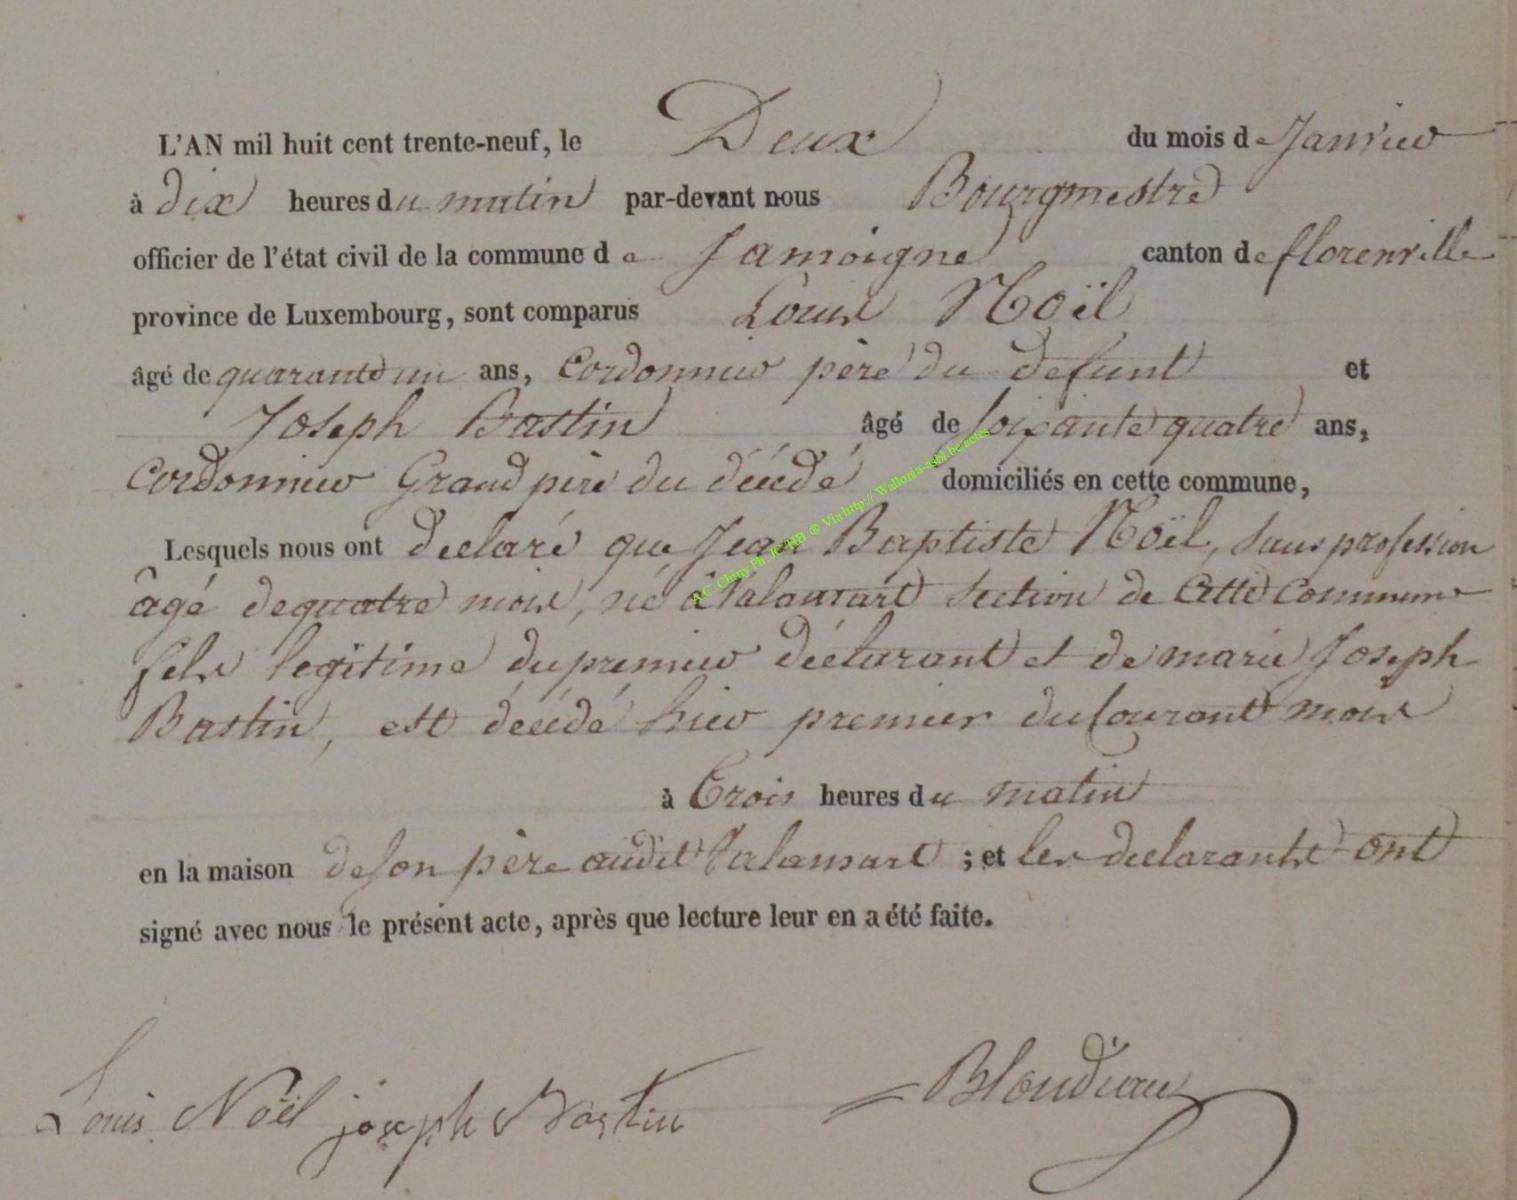 L'AN mil huit cent trente-neuf, le Deux du mois de Janvier
à dix heures du matin par-devant nous Bourgmestre
officier de l'état civil de la commune de Jamoigne canton de florenville
province de Luxembourg, sont comparus Louis Noël
âgé de quarante un ans, Cordonnier père du defunt et
Joseph Bastin âgé de soixante quatre ans,
Cordonnier Grand père du décédé domiciliés en cette commune,
Lesquels nous ont declaré que Jean Baptiste Noël, sans profession
âgé de quatre mois, né à Valansart section de Cette Commune
fils legitime du premier déclarant et de marie Joseph
Bastin, est décédé hier premier du Courant mois
à trois heures du matin
en la maison de son père audit Valansart ; et les declarants ont
signé avec nous le présent acte, après que lecture leur en a été faite.
Louis Noël joseph Bastin Blondiau